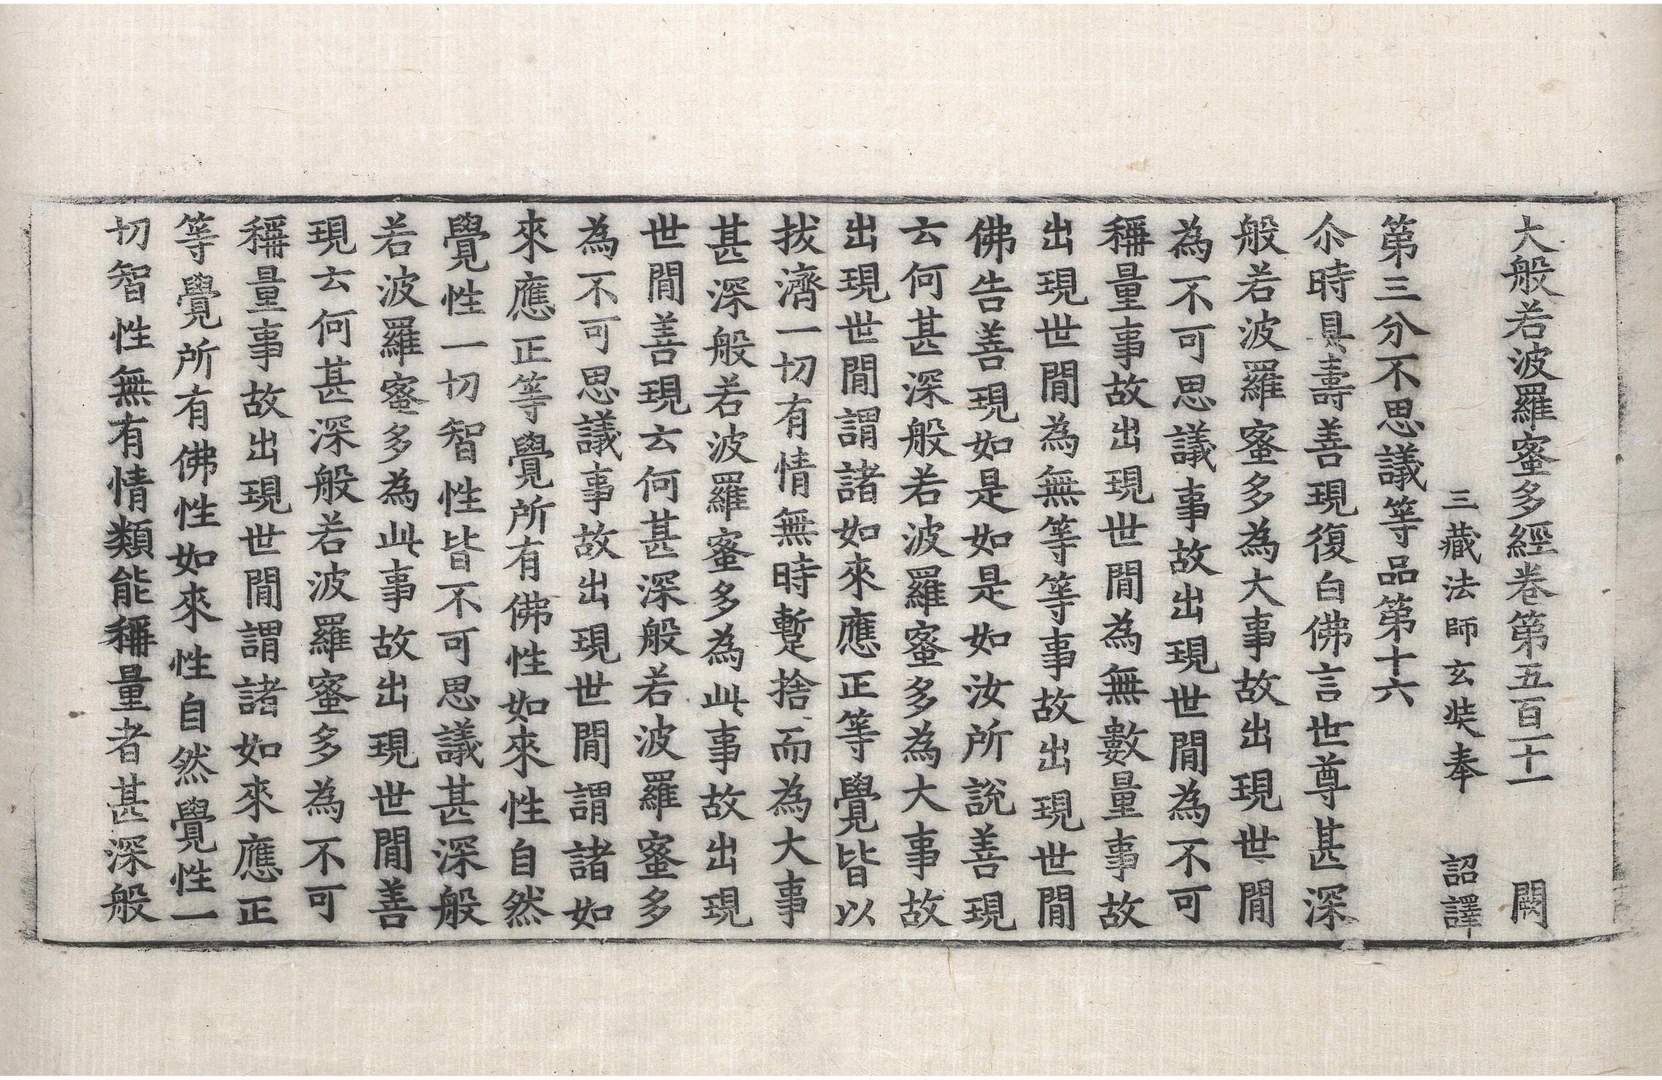 大般若波羅蜜多經卷第五百一十一　闕
三藏法師玄奘奉　詔譯
第三分不思議等品第十六
尒時具壽善現復白佛言世尊甚深
般若波羅蜜多為大事故出現世間
為不可思議事故出現世間為不可
稱量事故出現世間為無數量事故
出現世間為無等等事故出現世間
佛告善現如是如是如汝所說善現
云何甚深般若波羅蜜多為大事故
出現世間謂諸如來應正等覺皆以
拔濟一切有情無時蹔捨而為大事
甚深般若波羅蜜多為此事故出現
世間善現云何甚深般若波羅蜜多
為不可思議事故出現世間謂諸如
來應正等覺所有佛性如來性自然
覺性一切智性皆不可思議甚深般
若波羅蜜多為此事故出現世間善
現云何甚深般若波羅蜜多為不可
稱量事故出現世間謂諸如來應正
等覺所有佛性如來性自然覺性一
切智性無有情類能稱量者甚深般